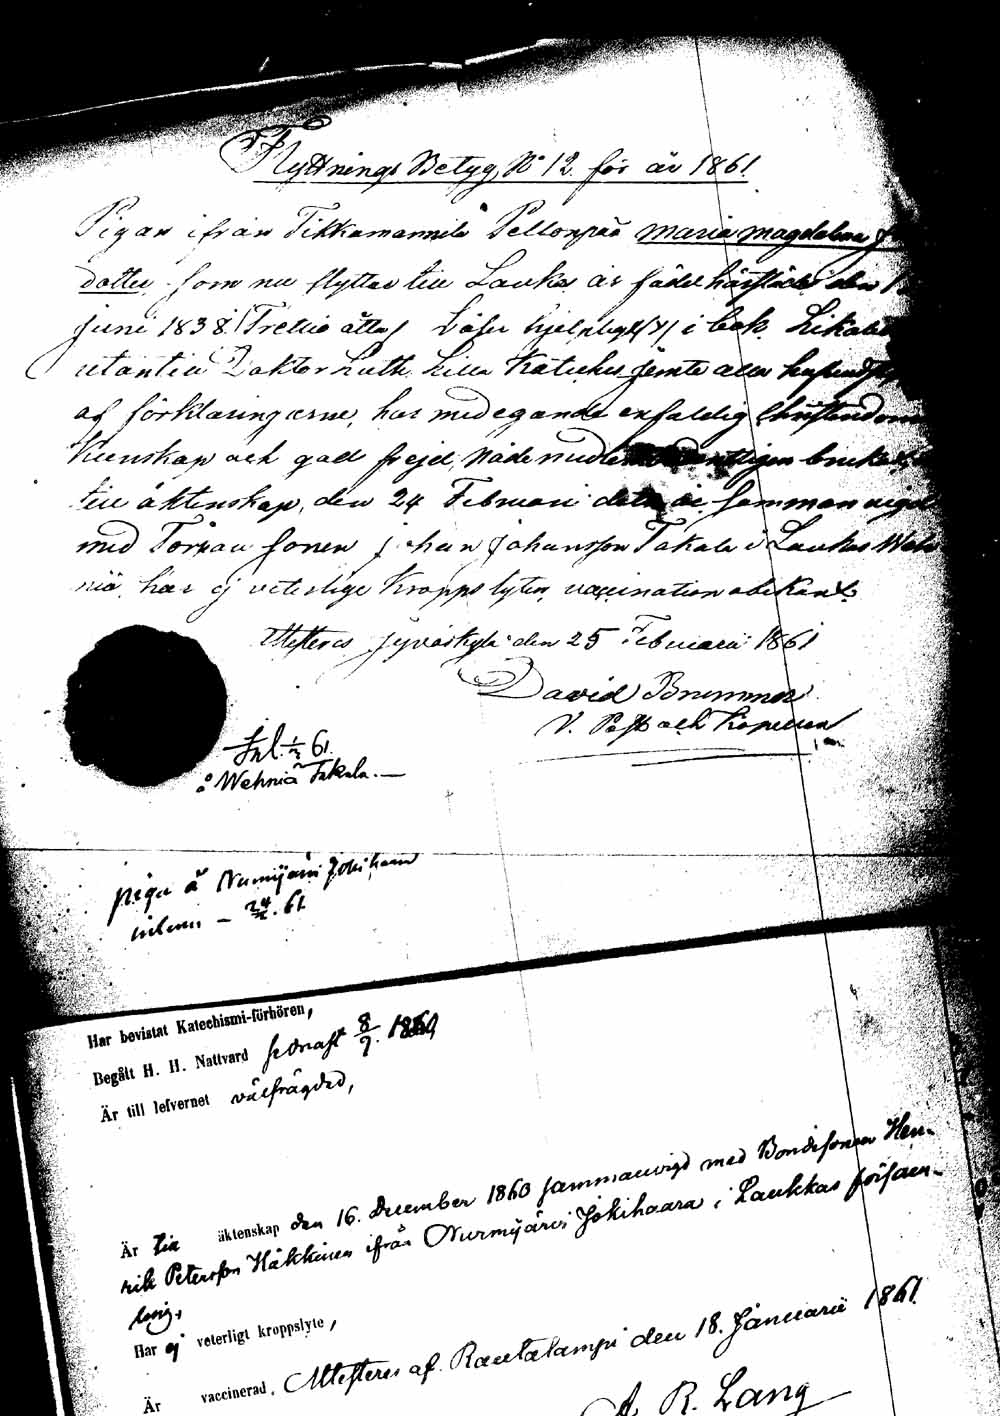 Flyttnings Betyg, No 12. för år 1861.
Pigan ifrån Tikkamannila Pellonpää Maria Magdalena
dotter som nu flyttar till Lauka är född härstädes den
Juni 1838. (Trettio åtta) Läser hjelpligt i bok
utantill Doktor Luth. Lilla Kateches jemte alla
af förklaringarne, har med egande enfaldig Christendoms
Kunskap och god frejd, Nådemedlen bruka
till äktenskap, den 24 Februari detta år sammanvigd
med Torpare sonen Johan Johansson Takala i Laukas Weh
niä, har ej veterlige Kropps lyten, vaccination obekant.
Attesteras Jyväskylä den 25 Februarii 1861
David Brummer
V. Past. och Kapellan
Inl. 1/3 61.
å Wehniä Takala.
piga å Nurmijärvi Jokihaara
24/2. 61
Har bevistat Katechismi-förhören,
Begått H. H. Nattvard sednast 8/7. 1860,
Är till lefvernet välfrägdad,
Är till äktenskap den 16. December 1860 sammanvigd med Bondesonen Hen-
rik Petersson Häkkinen ifrån Nurmijärvi Jokihaara i Laukkas försam-
ling,
Har ej veterligt kroppslyte,
Är vaccinerad. Attesteras af Rautalampi den 18. Januarii 1861.
A. R. Lang